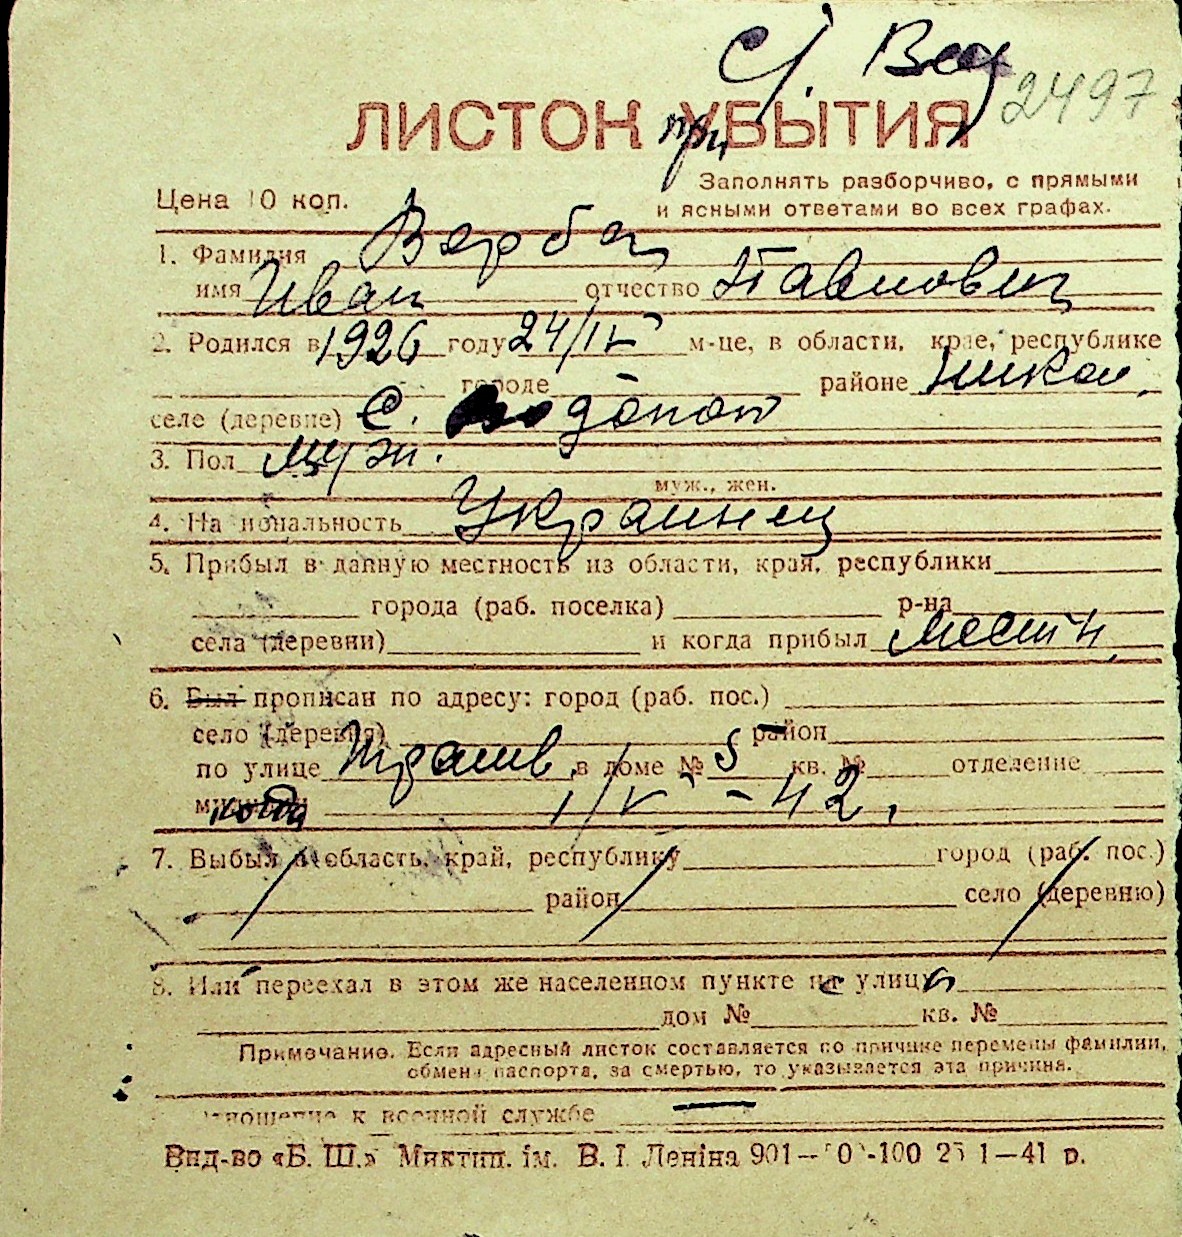 с/ Вод
2497
ЛИСТОК УБЫТИЯ
при
Цена 10 коп.
Заполнять разборчиво, с прямыми
и ясными ответами во всех графах.
1. Фамилия Верба
имя Иван отчество Павлович
2. Родился в 1926 году 24/IV м-це, в области, крае, республике
городе районе Никол.
селе (деревне) с. Водопой
3. Пол муж.
муж., жен.
4. Национальность Украинец
5. Прибыл в данную местность из области, края, республики
города (раб. поселка) р-на
села (деревни) и когда прибыл местн.
6. Был прописан по адресу: город (раб. пос.)
село (деревня) район
по улице в доме № 5 кв. № отделение
милиции когда 1/V - 42.
7. Выбыл в область, край, республику город (раб. пос.)
район село (деревню)
8. Или переехал в этом же населенном пункте на улицу
дом № кв. №
Примечание. Если адресный листок составляется по причине перемены фамилии,
обмена паспорта, за смертью, то указывается эта причина.
отношение к военной службе —
Вид-во «Б. Ш.» Миктип. ім. В. І. Леніна 901— -100 1—41 р.